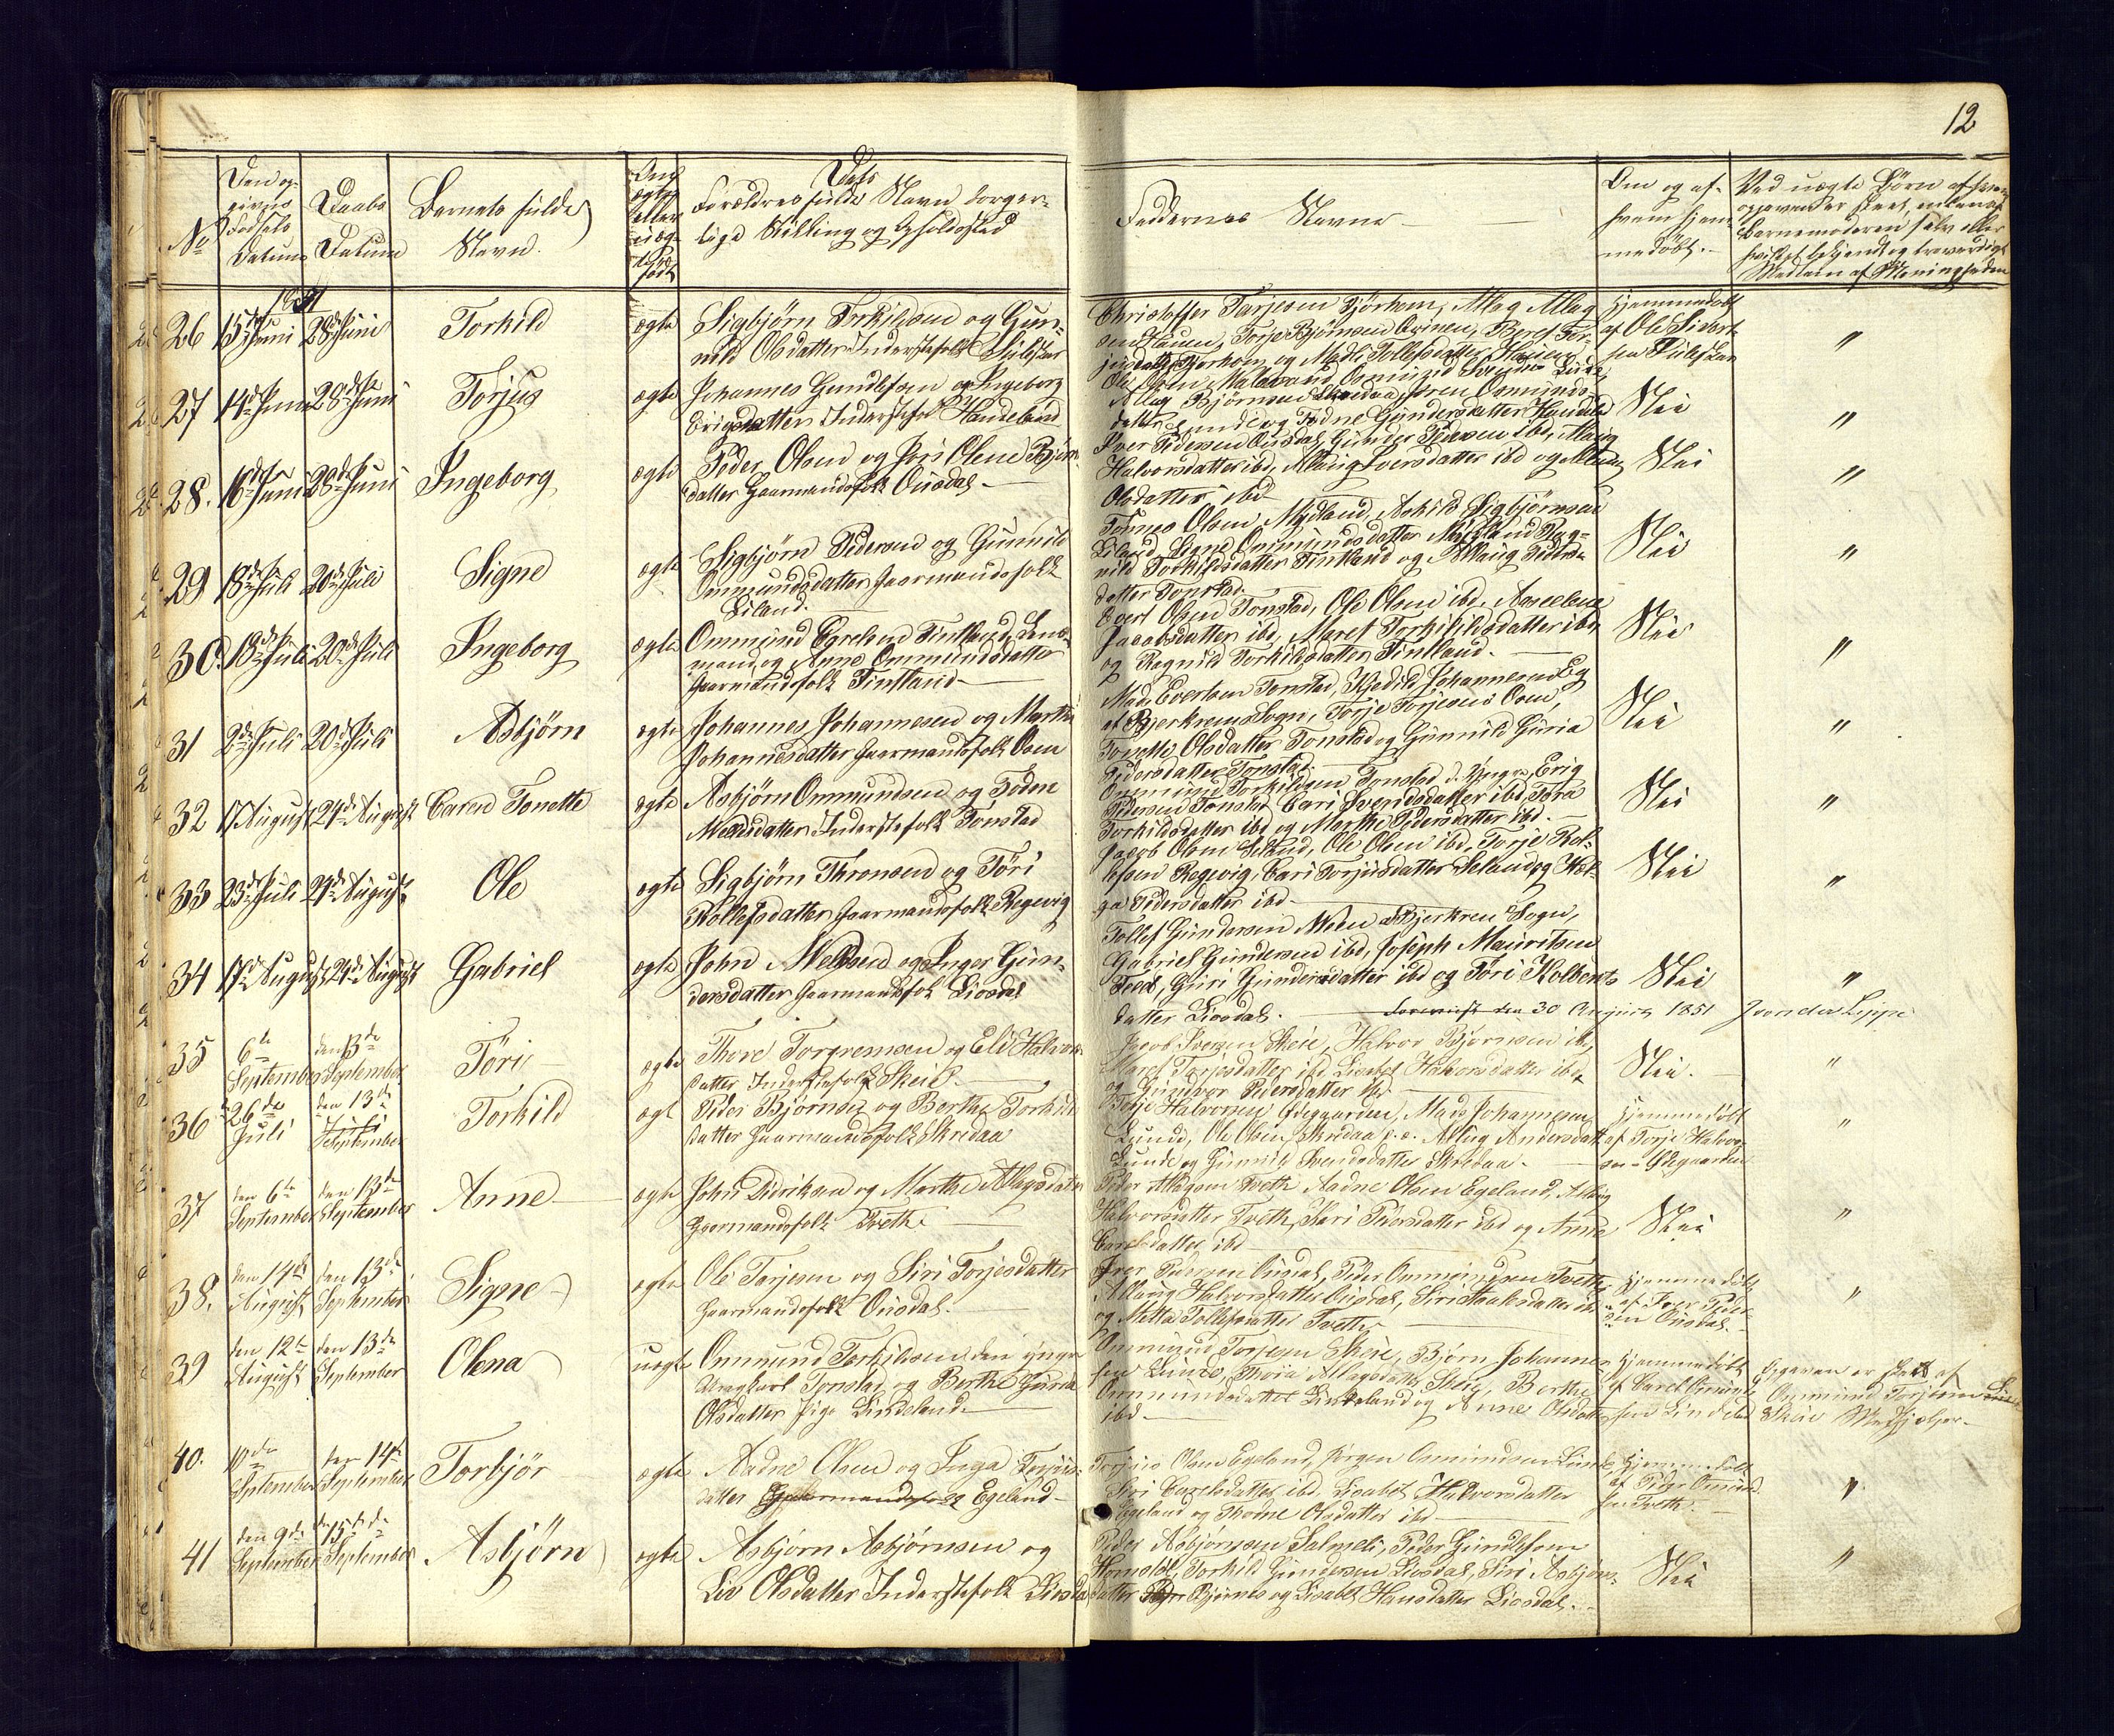 12
No
Den op-
givne
Fødsels
Datum
Daabs
Datum
Barnets fulde
Navn.
Om
ægte
eller
uæg-
te
født
Dets
Forældres fulde Navn borger-
lige Stilling og Opholdssted
Faddernes Navne
Om og af
hvem hjem-
medøbt.
Ved uægte Børn af hvem
opgaven er skeet, enten af
Barnemoderen selv eller
hvilket bekjendt og troværdigt
Medlem af Menigheden
1851
26 15de Juni 28de Juni Torkild ægte
Sigbjørn Torkildsen og Gun-
nild Olsdatter Inderstefolk
Christoffer Tarjesen Bjørhom, Atlag Atlag
sen Hauen, Torje Bjørnsen Qvinen, Beret Tor-
jusdatter Bjørhom og Malli Tollefsdatter Hauen
Hjemmedøbt
af Ole Sivert
sen
"
27 14de Juni 28de Juni Torjus ægte
Johannes Gundlefsen og Ingeborg
Erigsdatter Inderstefolk Haneland
Ole Osen Osmund Svendsen Lunde
Atlag Bjørnsen Skredaa, Søren Osmunds-
datter Lunde og Tadne Gundersdatter
Nei
"
28. 16de Juni 28de Juni Ingeborg ægte
Peder Olsen og Olene Bjørns
datter Gaarmandsfolk Ousdal
Iver Pedersen Ousdal, Gunder Pedersen ibd, Allaug
Halvorsdatter ibd, Allaug Iversdatter ibd og
Olsdatter ibd
Nei
"
29 18de Juli 20de Juli Signe ægte
Sigbjørn Pedersen og Gunnild
Ommundsdatter Gaarmandsfolk
Eiland.
Tønnes Olsen Mydland, Askild Sigbjørnsen
Eiland, Signe Ommundsdatter Mydland Rag-
nild Torkildsdatter Fintland og Allaug Peders-
datter Tonstad
Nei
"
30. 18de Juli 20de Juli Ingeborg ægte
Ommund Egelsen Fintland, Lens-
mand og Anne Ommundsdatter
Gaarmandsfolk Fintland
Evert Olsen Tonstad, Ole Olsen ibd, Aaselene
Jacobsdatter ibd, Maret Torkildsdatter ibd
og Ragnild Torkildsdatter Fintland.
Nei
"
31 2de Juli 20de Juli Asbjørn ægte
Johannes Johannesen og Marthe
Johannesdatter Gaarmandsfolk Osen
Mads Evertsen Tonstad, Kjedild Johannesen Eig
af Bjerkrems Sogn, Torje Torjesen Osen,
Tonette Olsdatter Tonstad og Gunnild Guria
Pedersdatter Tonstad.
Nei
"
32 17 August 24de August Caren Tonette ægte
Asbjørn Ommundsen og Taden
Mellsdatter Inderstefolk Tonstad
Ommund Torkildsen Tonstad d. Yngre, Erig
Pedersen Tonstad, Cari Svendsdatter ibd, Tora
Torkildsdatter ibd og Marthe Pedersdatter ibd.
Nei
"
33 23de Juli 24de August Ole ægte
Sigbjørn Thronsen og Tøri
Rollefsdatter Gaarmandsfolk Regevig
Jacob Olsen Selund, Ole Olsen ibd, Torje Rol-
lefsen Regevig, Cari Torjusdatter Selund og Hel-
ga Pedersdatter ibd
Nei
"
34 17de August 24de August Gabriel ægte
John Mellsen og Inger Gun-
dersdatter Gaarmandsfolk Liosdal
Tollef Gundersen Meen af Bjerkrem Sogn,
Gabriel Gundersen ibd, Joseph Mauritsen
Guri Gundersdatter ibd og Tøri Kolbens
datter Liosdal.
Nei
"
den 30 August 1851
35 6te September den 13de September Tøri ægte
Thore Torgrimsen og Eli Halvors
datter Inderstefolk Skeie.
Jacob Iversen Skeie, Halvor Bjørnsen ibd,
Maret Torjesdatter ibd, Lisabet Halvorsdatter ibd
og Gundvor Pedersdatter ibd
Nei.
"
36 26de Juli den 13de September Torkild ægt
Peder Bjørnsen og Berthe Torkilds
datter Gaarmandsfolk Skredaa
Torje Halvorsen Ødegaarden, Mads Johannesen
Lunde, Ole Olsen Skredaa Allaug Andersdatt
Lunde og Gunnild Svendsdatter Skredaa.
Hjemmedøbt
af Torje Halvor-
sen Ødegaarden
"
37 den 6te September den 13de September Anne ægte
John Didriksen og Marthe Atlagsdatter
Gaarmandsfolk Tveth
Peder Atlagsen Tveth Aadne Olsen Egeland, Allaug
Halvorsdatter Tveth, Kari Pedersdatter ibd og Anne
Carelsdatter ibd
Nei
"
38. den 14de August den 13de September Signe ægte
Ole Torjesen og Siri Torjesdatter
Gaarmandsfolk Ousdal.
Iver Pedersen Ousdal, Peder Ommundsen Tveth
Allaug Halvorsdatter Ousdal, Siri Aslaksdatter ibd
og Metta Tollefsdatter Tveth
Hjemmedøbt
af Iver Peder-
sen Ousdal.
"
39 den 12te August den 13de September Olena uægte
Ommund Torkildsen den yngre
Ungkarl Tonstad og Berthe Guria
Olsdatter Pige Lindeland
Ommund Torjesen Skeie, Bjørn Johannes-
sen Lunde, Thoria Atlagsdatter Skeie, Berthe
Ommundsdatter Lindeland og Anne Olsdatter
ibd
Hjemmedøbt
af Carel Omund-
sen Lindeland
Opgaven er skeet af
Ommund Torjesen
Skeie Medhjelper.
40. 10de September den 14de September Torbjør ægte
Aadne Olsen og Inga Torjus-
datter Gaarmandsfolk Egeland
Torjus Olsen Egeland, Jørgen Ommundsen Lunde,
Siri Carelsdatter ibd Lisabet Halvorsdatter
Egeland og Thorne Olsdatter ibd
Hjemmedøbt
af Peder Omund
sen Tveth.
"
41 den 9de September den 15de September Asbjørn ægte
Asbjørn Asbjørnsen og
Liv Olsdatter Inderstefolk Liosdal
Peder Asbjørnsen Salmeli, Peder Gundlefsen
Homdal, Torkild Gundersen Liosdal, Siri Asbjørns-
datter Bjørnes og Lisabet Hansdatter Liosdal.
Nei
"